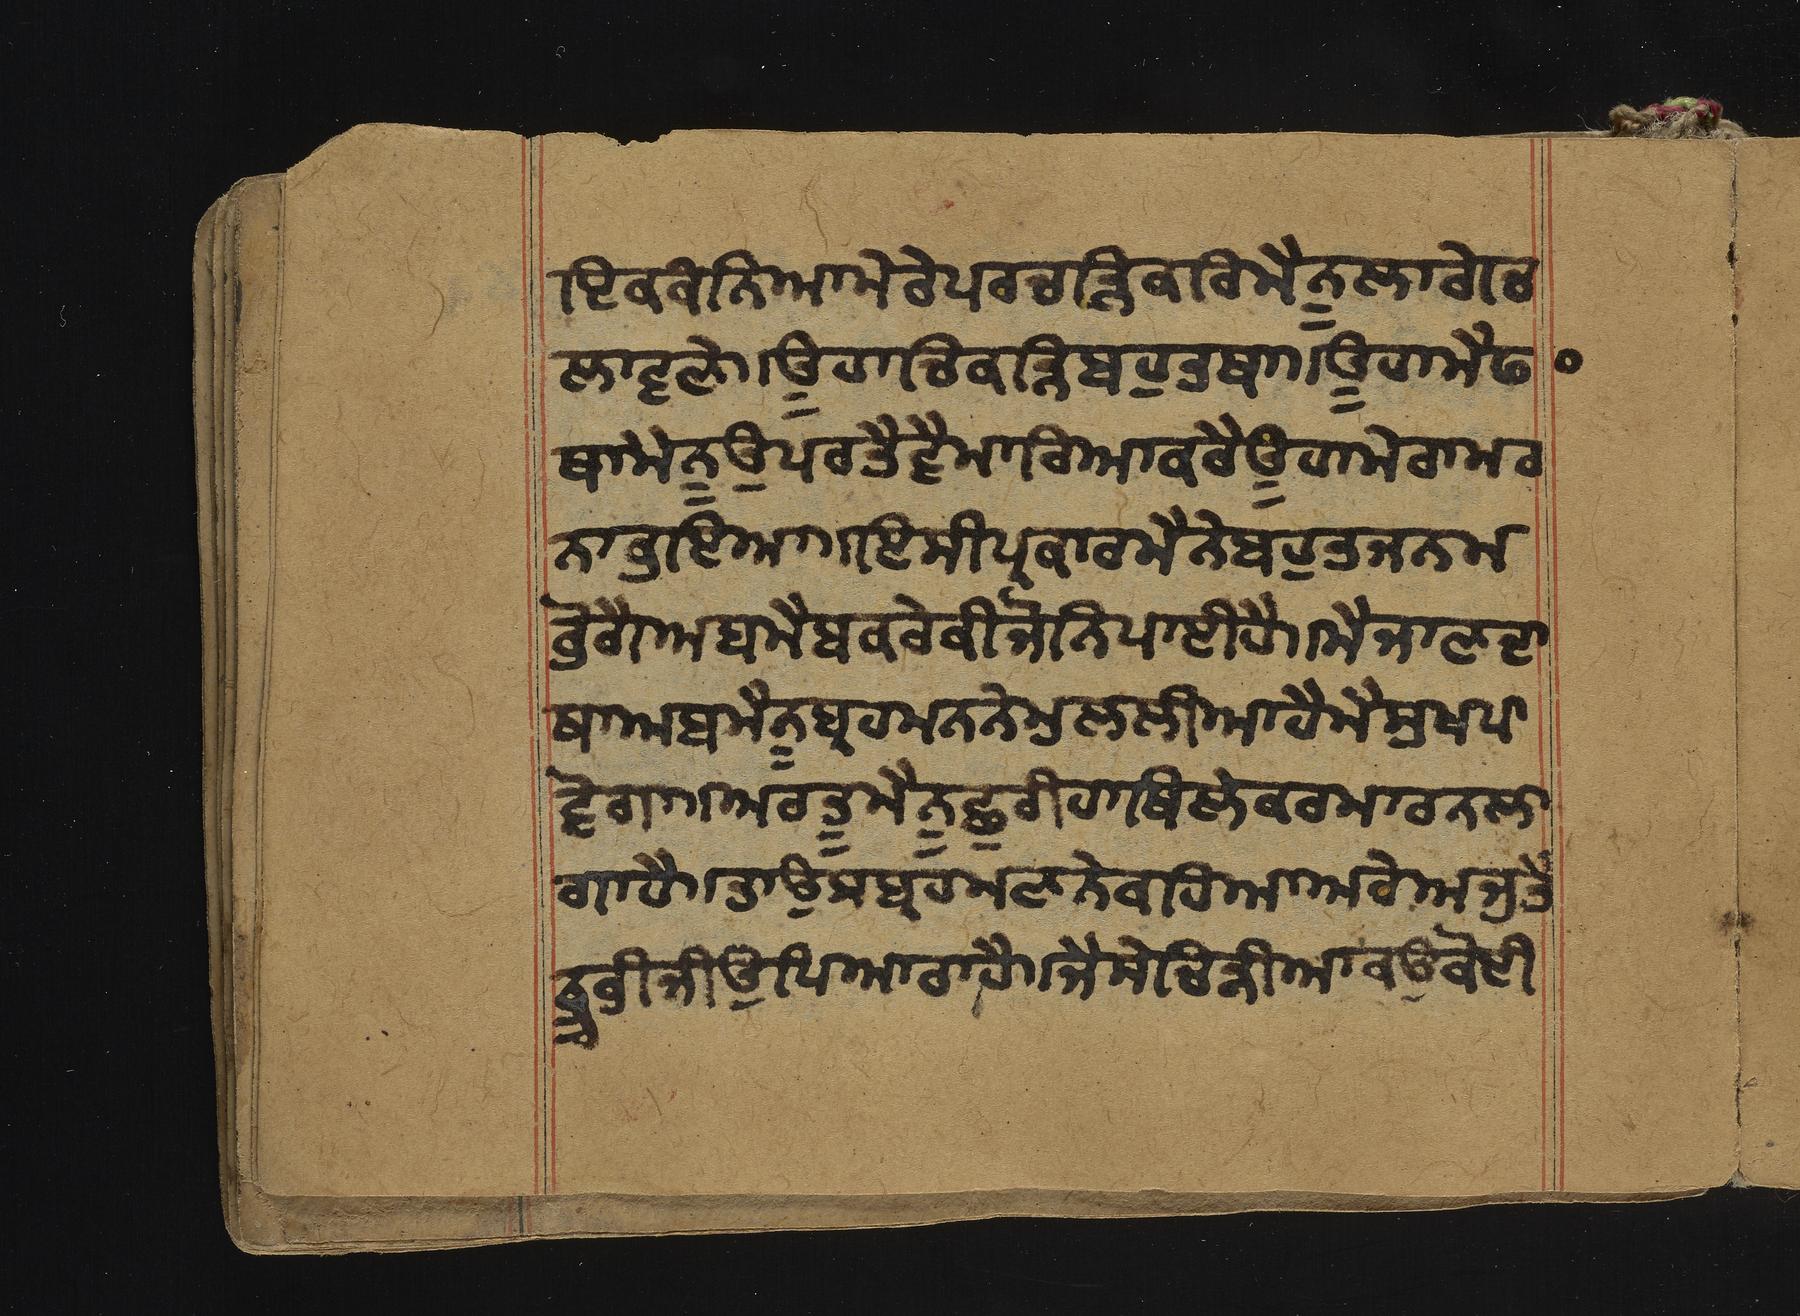 ਇਕਕੀਨਿਆਮੇਰੇਪਰਚਾੜਿਕਰਿਮੈਨੂਲਾਗੇਚ
ਲਾਵਣੇ॥ਊਹਾਚਿਕੜਿਬਹੁਤਸ਼ਾ॥ਊਹਾਮੈਫ०
ਥਾਮੇਨੂਉਪਰਤੈਵੈਮਾਰਿਆਕਰੈਊਹਾਮੇਰਾਮਰ
ਨਾਹੁਇਆ॥ਇਸੀਪ੍ਰਕਾਰਮੈਨੇਬਹੁਤਜਨਮ
ਭੋਗੈਅਬਮੈਬਕਰੇਕੀਜੋਨਿਪਾਈਹੈ॥ਮੈਜਾਣਦਾ
ਥਾਅਬਮੈਨੂਬ੍ਰਹਮਨਨੇਮੁਲਲੀਆਹੈਮੈਸੁਖਪਾ
ਵੋਗਾ॥ਅਰਤੂਮੈਨੂਛੁਰੀਹਾਥਿਲੇਕਰਮਾਰਨਲਾ
ਗਾਹੈ॥ਤਾਉਸਬ੍ਰਹਮਣਨੇਕਹਿਆਅਰੇਅਜੁਤੈ
ਨੂਭੀਜੀਉਪਿਆਰਾਹੈ॥ਜੈਸੇਚਿੜੀਆਕਉਕੋਈ